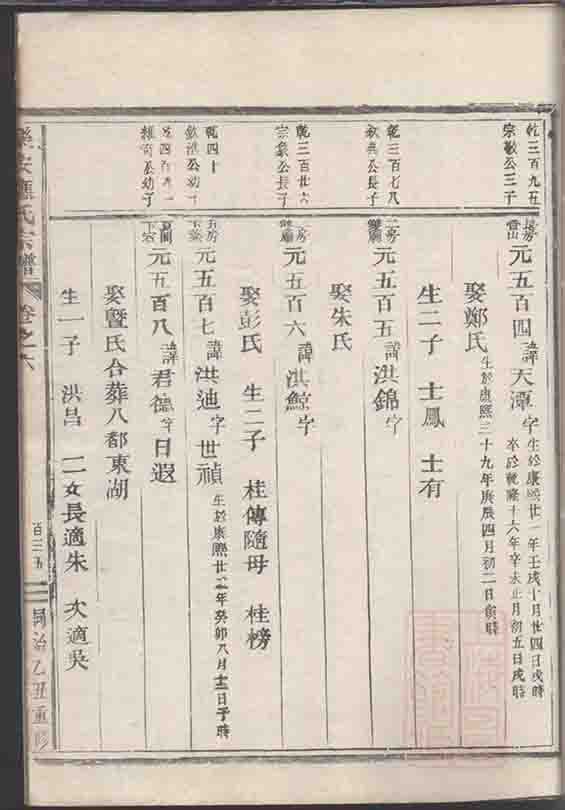 乾三百九五
宗敬公三子
元五百四諱天潭字
生於康熙廿一年壬戌十月廿四日戌時
卒於乾隆十六年辛未正月初五日戌時
娶鄭氏生於康熙三十九年庚辰四月初二日寅時
生二子 士鳳 士有
乾三百七八
欽典公長子
元五百五諱洪錦字
娶朱氏
乾三百廿六
宗象公長子
元五百六諱洪鯨字
娶彭氏 生二子 桂傳隨母 桂榜
乾四十
公幼子
元五百七諱洪迪字世禎生於康熙廿二年癸卯八月十三日子時
公幼子
元五百八諱君德字日遐
娶暨氏合葬八都東湖
生一子 洪昌 二女長適朱 次適吳
氏宗譜 卷之六
百三五
同治乙丑重修